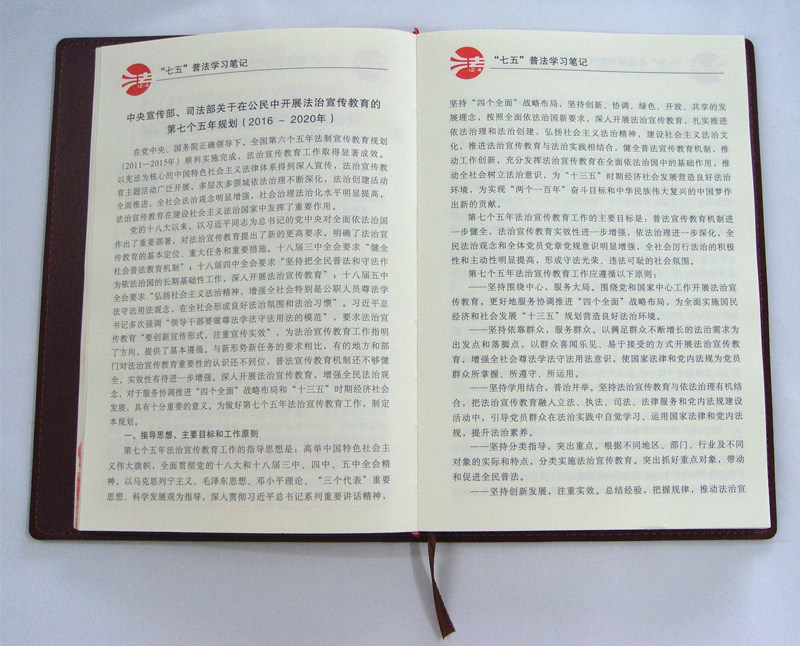 “七五”普法学习笔记
中央宣传部、司法部关于在公民中开展法治宣传教育的
第七个五年规划（2016 - 2020年）
在党中央、国务院正确领导下，全国第六个五年法制宣传教育规划
（2011—2015年）顺利实施完成，法治宣传教育工作取得显著成效。
以宪法为核心的中国特色社会主义法律体系得到深入宣传，法治宣传教
育主题活动广泛开展，多层次多领域依法治理不断深化，法治创建活动
全面推进，全社会法治观念明显增强，社会治理法治化水平明显提高，
法治宣传教育在建设社会主义法治国家中发挥了重要作用。
党的十八大以来，以习近平同志为总书记的党中央对全面依法治国
作出了重要部署，对法治宣传教育提出了新的更高要求，明确了法治宣
传教育的基本定位、重大任务和重要措施。十八届三中全会要求“健全
社会普法教育机制”；十八届四中全会要求“坚持把全民普法和守法作
为依法治国的长期基础性工作，深入开展法治宣传教育”；十八届五中
全会要求“弘扬社会主义法治精神，增强全社会特别是公职人员尊法学
法守法用法观念，在全社会形成良好法治氛围和法治习惯”。习近平总
书记多次强调“领导干部要做尊法学法守法用法的模范”，要求法治宣
传教育“要创新宣传形式，注重宣传实效”，为法治宣传教育工作指明
了方向，提供了基本遵循。与新形势新任务的要求相比，有的地方和部
门对法治宣传教育重要性的认识还不到位，普法宣传教育机制还不够健
全，实效性有待进一步增强。深入开展法治宣传教育，增强全民法治观
念，对于服务协调推进“四个全面”战略布局和“十三五”时期经济社会
发展，具有十分重要的意义。为做好第七个五年法治宣传教育工作，制定
本规划。
一、指导思想、主要目标和工作原则
第七个五年法治宣传教育工作的指导思想是：高举中国特色社会主
义伟大旗帜，全面贯彻党的十八大和十八届三中、四中、五中全会精
神，以马克思列宁主义、毛泽东思想、邓小平理论、“三个代表”重要
思想、科学发展观为指导，深入贯彻习近平总书记系列重要讲话精神，
“七五”普法学习笔记
坚持“四个全面”战略布局，坚持创新、协调、绿色、开放、共享的发
展理念，按照全面依法治国新要求，深入开展法治宣传教育，扎实推进
依法治理和法治创建，弘扬社会主义法治精神，建设社会主义法治文
化，推进法治宣传教育与法治实践相结合，健全普法宣传教育机制，推
动工作创新，充分发挥法治宣传教育在全面依法治国中的基础作用，推
动全社会树立法治意识，为“十三五”时期经济社会发展营造良好法治
环境，为实现“两个一百年”奋斗目标和中华民族伟大复兴的中国梦作
出新的贡献。
第七个五年法治宣传教育工作的主要目标是：普法宣传教育机制进
一步健全，法治宣传教育实效性进一步增强，依法治理进一步深化，全
民法治观念和全体党员党章党规意识明显增强，全社会厉行法治的积极
性和主动性明显提高，形成守法光荣、违法可耻的社会氛围。
第七个五年法治宣传教育工作应遵循以下原则：
——坚持围绕中心，服务大局。围绕党和国家中心工作开展法治宣
传教育，更好地服务协调推进“四个全面”战略布局，为全面实施国民
经济和社会发展“十三五”规划营造良好法治环境。
——坚持依靠群众，服务群众。以满足群众不断增长的法治需求为
出发点和落脚点，以群众喜闻乐见、易于接受的方式开展法治宣传教
育，增强全社会尊法学法守法用法意识，使国家法律和党内法规为党员
群众所掌握、所遵守、所运用。
——坚持学用结合，普治并举。坚持法治宣传教育与依法治理有机结
合，把法治宣传教育融入立法、执法、司法、法律服务和党内法规建设
活动中，引导党员群众在法治实践中自觉学习、运用国家法律和党内法
规，提升法治素养。
——坚持分类指导，突出重点。根据不同地区、部门、行业及不同
对象的实际和特点，分类实施法治宣传教育。突出抓好重点对象，带动
和促进全民普法。
——坚持创新发展，注重实效。总结经验，把握规律，推动法治宣